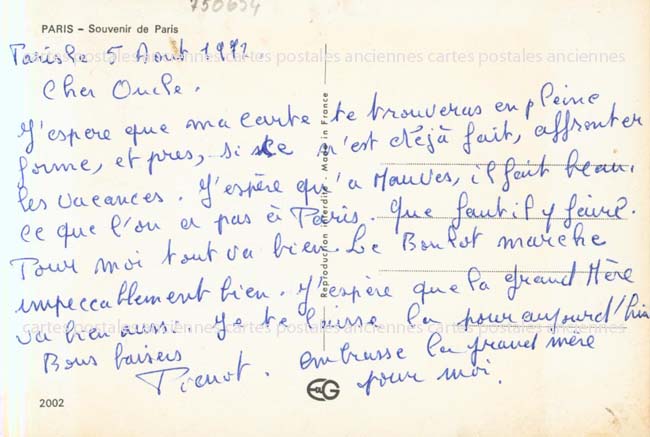 750654
PARIS – Souvenir de Paris
Paris le 5 Aout 1971.
cartes postales anciennes cartes postales anciennes
Cher Oncle.
J'espere que ma carte te trouveras en pleine
forme, et pres, si ce n'est déjà fait, affronter
les vacances. J'espère qu'a Mauves, il fait beau.
ce que l'on a pas à Paris. Que faut il y faire.
Pour moi tout va bien. Le Boulot marche
impeccablement bien. J'espère que la grand Mère
va bien aussi. Je te laisse la pour aujourd'hui
cartes postales anciennes cartes postales anciennes cartes postales anciennes
Bons baisers embrasse la grand mère
Pierrot. pour moi.
Reproduction interdite - Made in France
EKG
2002